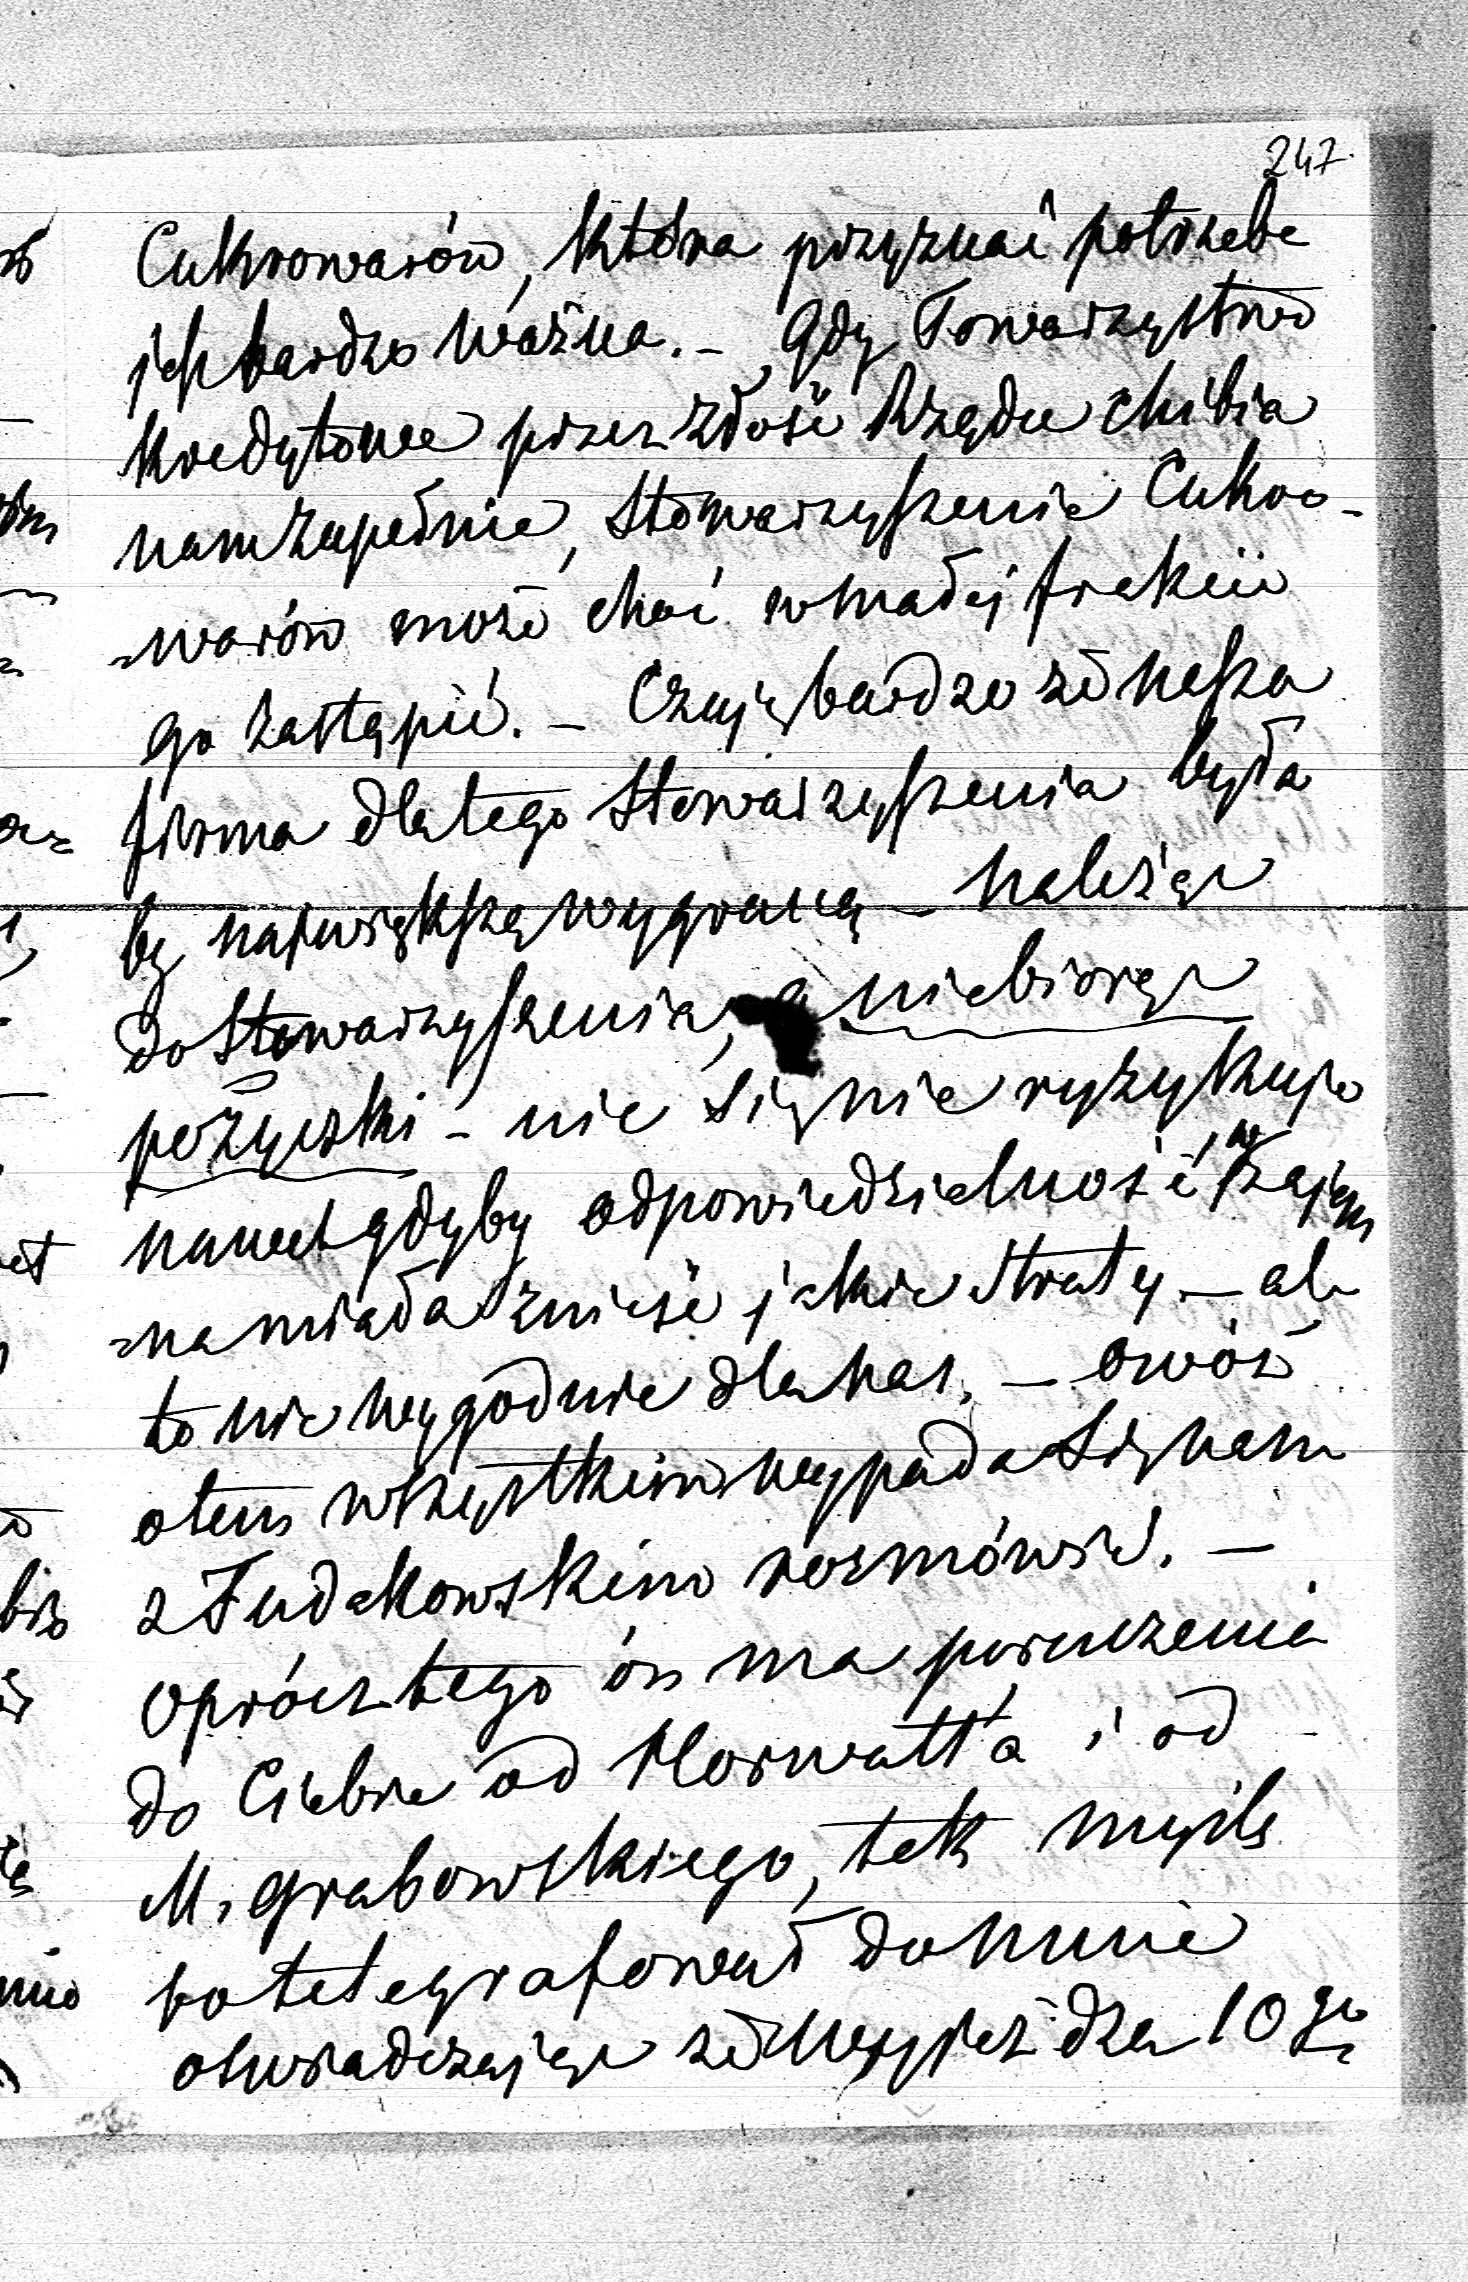 247.
Cukrowarów, która przyznać potrzeba
jest bardzo ważna. – Gdy Towarzystwo
Kredytowe przez złość Rządu chibia
nam zupełnie, Stowarzyszenie Cukro-
=warów może choć w małej frakcii
go zastąpić. – Czuję bardzo że nasza
firma dla tego Stowarzyszenia była
by największą wygraną – należąc
do Stowarzyszenia, a niebiorąc
pożyczki – nic się nie ryzykuje
nawet gdyby odpowiedzialność wzajem
=na miała znieść jakie straty – ale
to nie wygodnie dla nas. – Owóż
o tem wszystkim wypada się nam
z Fudakowskim rozmówić. –
Oprócz tego ón ma poruczenia
do Ciebie od Horwatt'a i od
M. Grabowskiego, tak myślę
bo telegrafował do mnie
oświadczając że wyjeżdża 10go